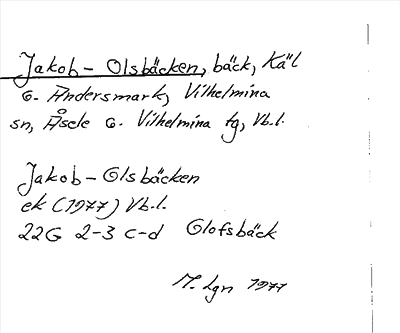 Jakob-Olsbäcken, bäck, Käl
o. Andersmark, Vilhelmina
sn, Åsele o. Vilhelmina tg, Vb.l.
Jakob-Olsbäcken
ek (1977) Vb.l.
22G 2-3 c-d Olofsbäck
M. Lgn 1977